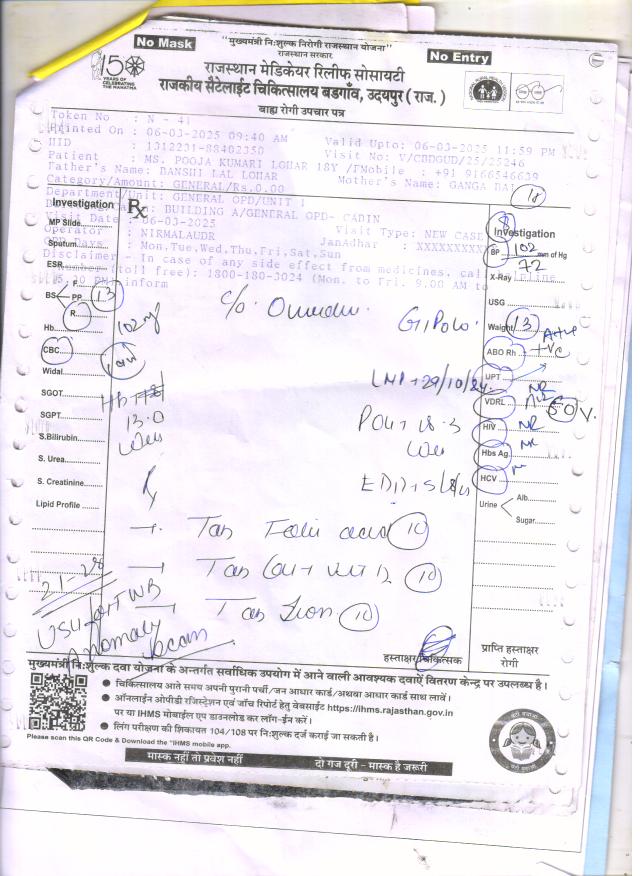 No Mask
"मुख्यमंत्री निःशुल्क निरोगी राजस्थान योजना"
राजस्थान सरकार
No Entry
150
YEARS OF
CELEBRATING
THE MAHATMA
राजस्थान मेडिकेयर रिलीफ सोसायटी
राजकीय सैटेलाईट चिकित्सालय बडगाँव, उदयपुर ( राज. )
बाह्य रोगी उपचार पत्र
Token No : N - 41
Printed On : 06-03-2025 09:40 AM
Valid Upto: 06-03-2025 11:59 PM
HID : 1312231-88402350
Visit No: V/CBDGUD/25/25246
Patient : MS. POOJA KUMARI LOHAR 18Y /F
Mobile : +91 9166546639
Father's Name: BANSHI LAL LOHAR
Mother's Name: GANGA BAI
Category/Amount: GENERAL/Rs.0.00
Department/Unit: GENERAL OPD/UNIT 1
BUILDING A/GENERAL OPD- CABIN
Visit Date : 06-03-2025
Visit Type: NEW CASE
Operator : NIRMALAUDR
JanAdhar : XXXXXXX
Days : Mon,Tue,Wed,Thu,Fri,Sat,Sun
Disclaimer - In case of any side effect from medicines, call
(toll free): 1800-180-3024 (Mon. to Fri. 9.00 AM to
PM) inform
18
Investigation
Rx
Investigation
MP Slide
Sputum
ESR
BS
F
PP
R
13
Hb
CBC
Widal
SGOT
SGPT
S.Bilirubin
S. Urea
S. Creatinine
Lipid Profile
BP 102 mm of Hg
72
X-Ray
USG
Waight 13
ABO Rh A +ve
UPT
VDRL NR
HIV NR
Hbs Ag NR
HCV
Urine
Alb.
Sugar
c/o
LMP + 29/10/24
Hb
13.0
EDD + 5/8/
→ Tab Folic acid 10
→ Tab Cal + Vit D 10
→ Tab Iron 10
21-28
USG for TWB
Anomaly
scan
हस्ताक्षर चिकित्सक
प्राप्ति हस्ताक्षर
रोगी
मुख्यमंत्री निःशुल्क दवा योजना के अन्तर्गत सर्वाधिक उपयोग में आने वाली आवश्यक दवाऐं वितरण केन्द्र पर उपलब्ध है।
● चिकित्सालय आते समय अपनी पुरानी पर्ची/जन आधार कार्ड/अथवा आधार कार्ड साथ लावें।
● ऑनलाईन ओपीडी रजिस्ट्रेशन एवं जाँच रिपोर्ट हेतु वेबसाईट https://ihms.rajasthan.gov.in
पर या IHMS मोबाईल एप डाउनलोड कर लॉग-ईन करें।
● लिंग परीक्षण की शिकायत 104/108 पर निःशुल्क दर्ज कराई जा सकती है।
Please scan this QR Code & Download the "IHMS mobile app.
मास्क नहीं तो प्रवेश नहीं
दो गज दूरी - मास्क है जरूरी